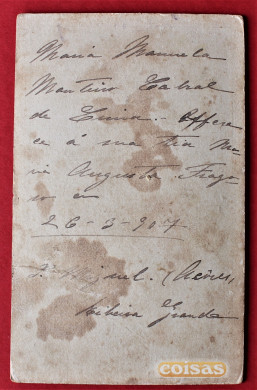 Maria Manuela
Monteiro Cabral
de Lima. Offere
ce á sua tia Ma
ria Augusta Frago
so em
26-3-907
S. Miguel. (Açores)
Ribeira Grande
coisas